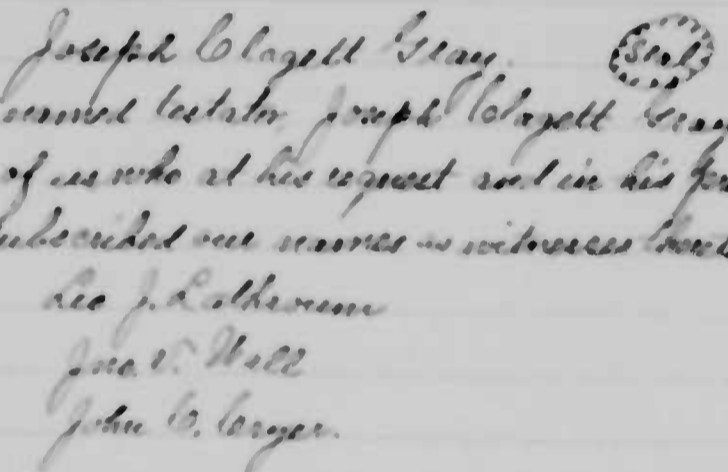 Joseph Clagett Gray. (Seal)
named testator Joseph Clagett Gray
of us who at his request and in his
subscribed our names as witnesses
Leo J.
Jno. T. Hall
John C.